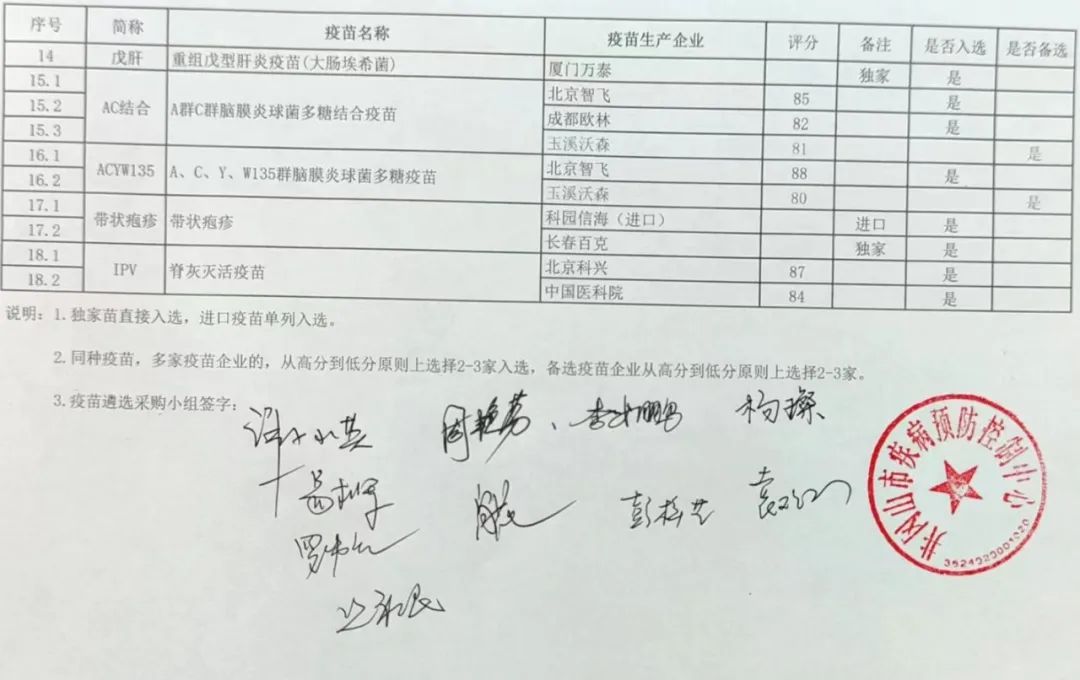 序号 简称 疫苗名称 疫苗生产企业 评分 备注 是否入选 是否备选
14 戊肝 重组戊型肝炎疫苗(大肠埃希菌) 厦门万泰 独家 是
15.1 AC结合 A群C群脑膜炎球菌多糖结合疫苗 北京智飞 85 是
15.2 成都欧林 82 是
15.3 玉溪沃森 81 是
16.1 ACYW135 A、C、Y、W135群脑膜炎球菌多糖疫苗 北京智飞 88 是
16.2 玉溪沃森 80 是
17.1 带状疱疹 带状疱疹 科园信海(进口) 进口 是
17.2 长春百克 独家 是
18.1 IPV 脊灰灭活疫苗 北京科兴 87 是
18.2 中国医科院 84 是
说明：1.独家苗直接入选，进口疫苗单列入选。
2.同种疫苗，多家疫苗企业的，从高分到低分原则上选择2-3家入选，备选疫苗企业从高分到低分原则上选择2-3家。
3.疫苗遴选采购小组签字：
井冈山市疾病预防控制中心